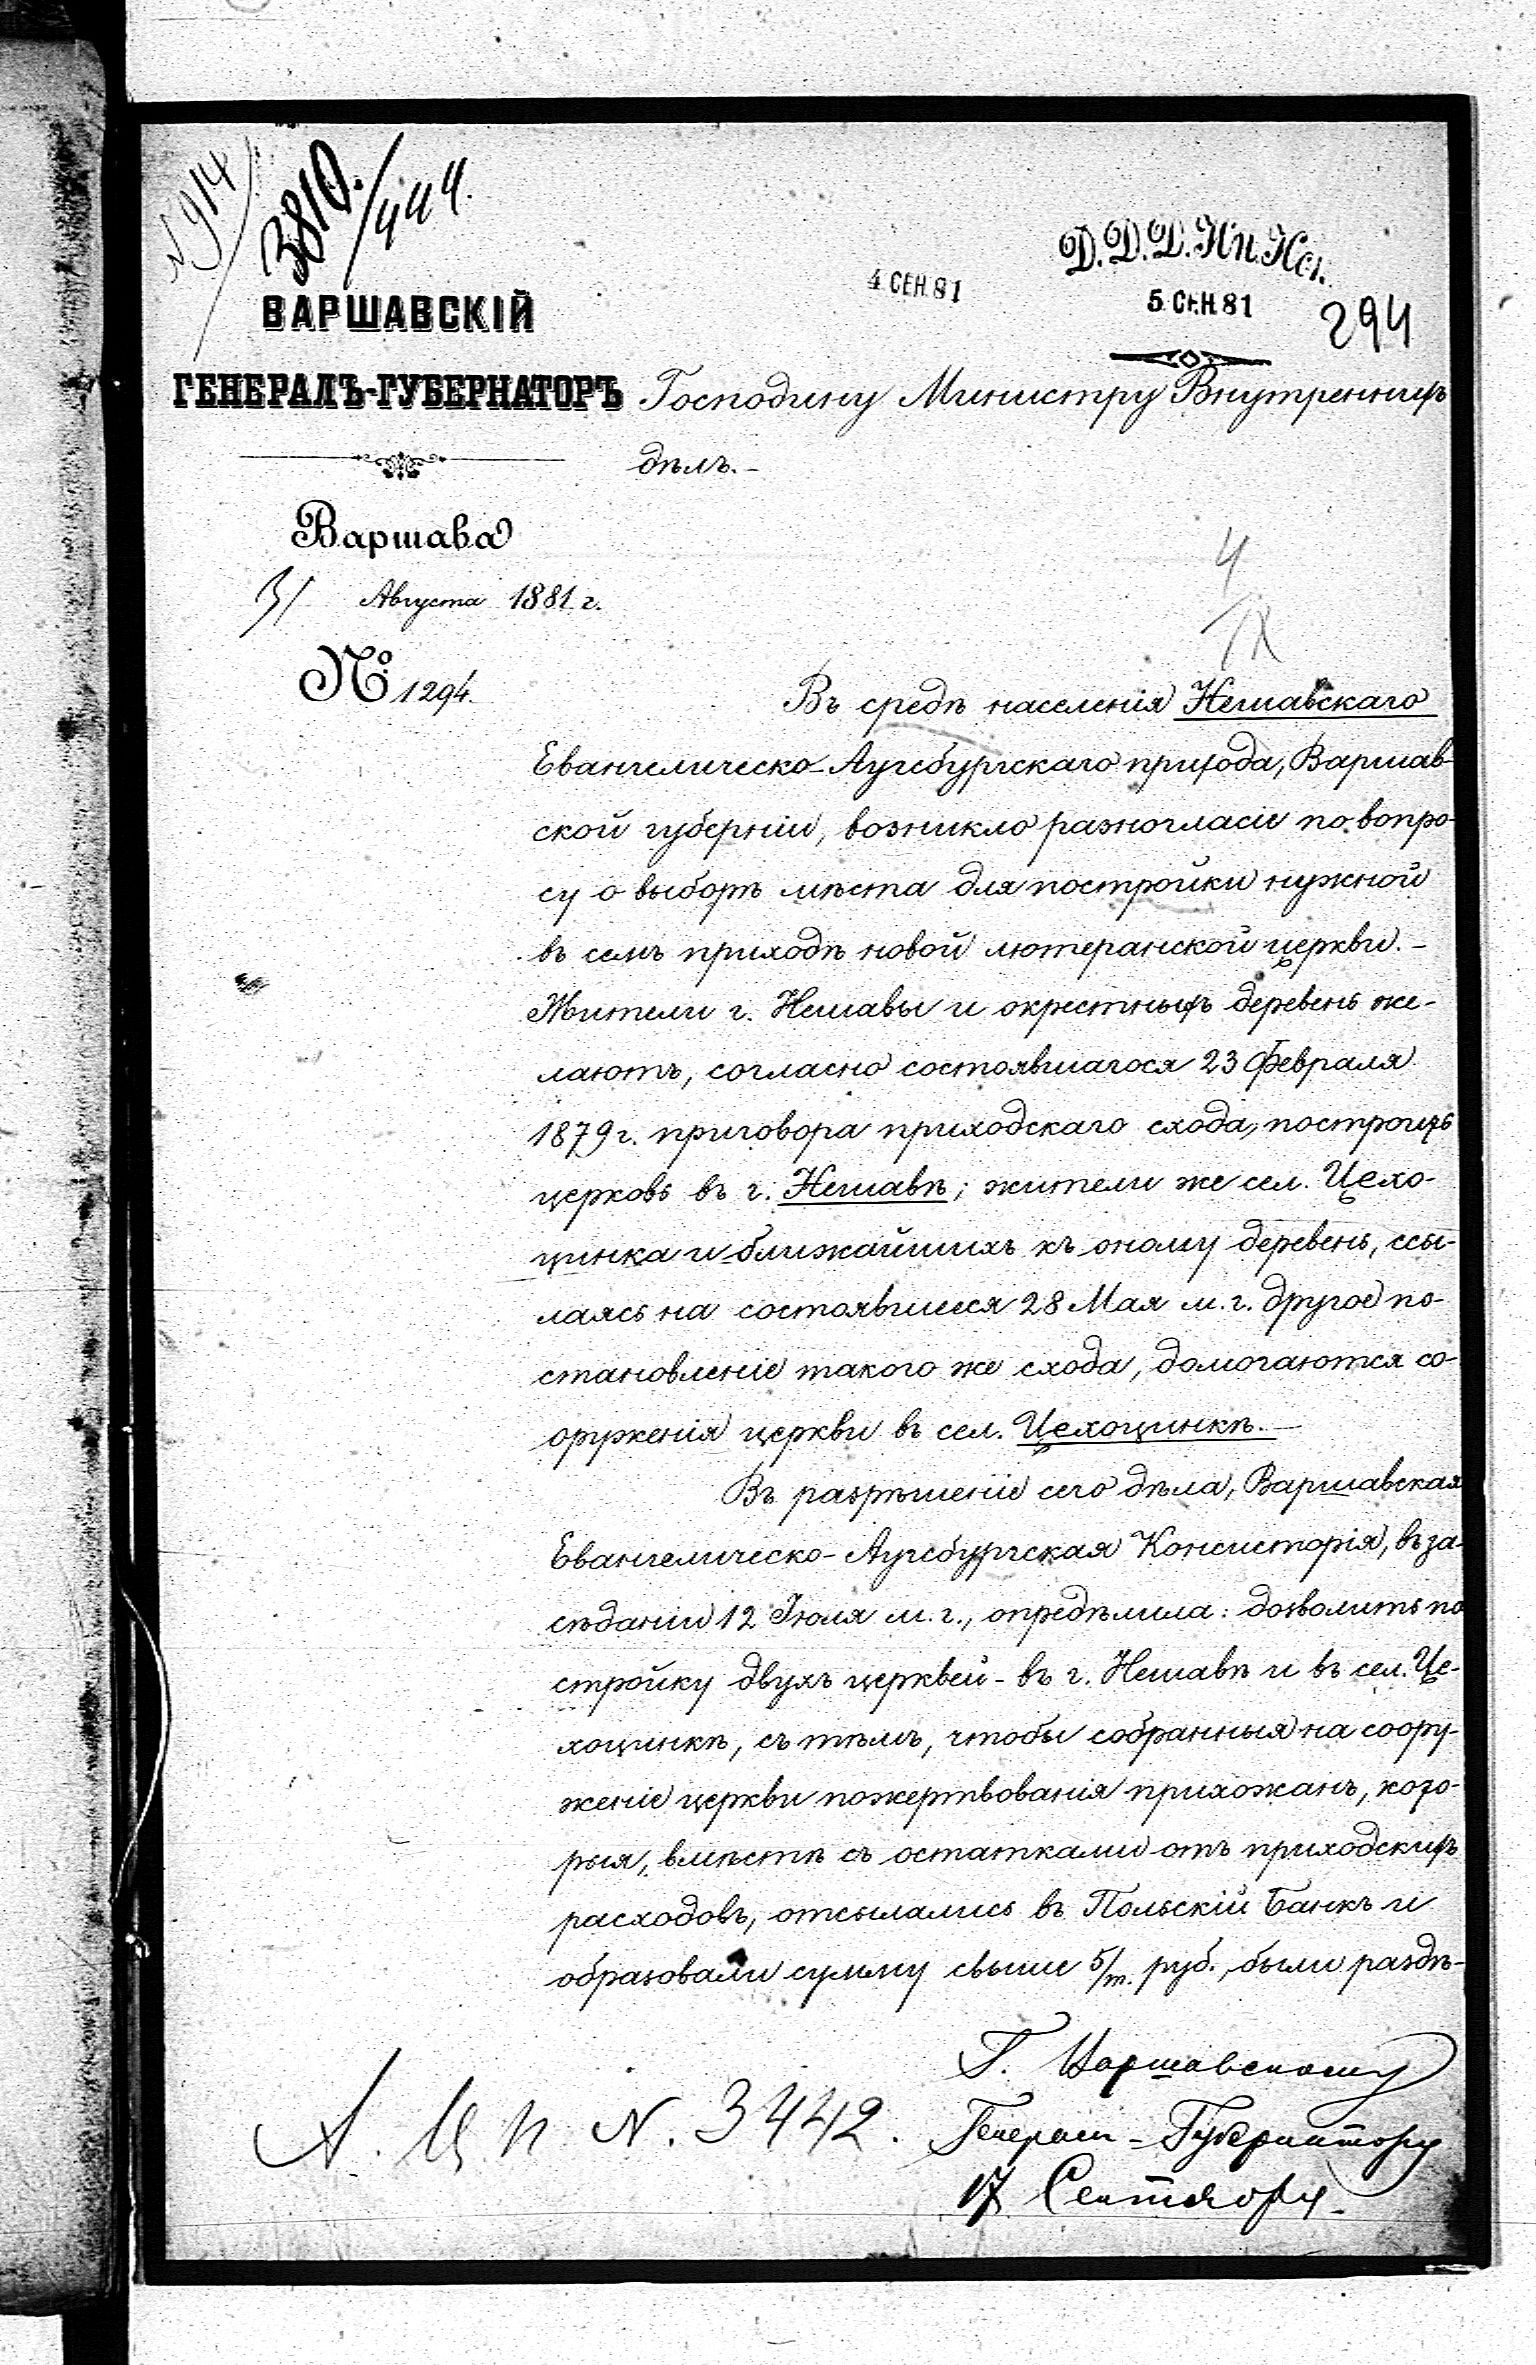 № 914
3810./444.
4 СЕН. 81
Д.Д.Д.Ин.Исп.
5 СЕН. 81
294
ВАРШАВСКІЙ
ГЕНЕРАЛЪ-ГУБЕРНАТОРЪ
Господину Министру Внутреннихъ
дѣлъ.-
Варшава
31 Августа 1881 г.
№ 1294.
4/IX
Въ средѣ населенія Нешавскаго
Евангелическо-Аугсбургскаго прихода, Варшав-
ской губерніи, возникло разногласіе по вопро-
су о выборѣ мѣста для постройки нужной
въ семъ приходѣ новой лютеранской церкви.-
Жители г. Нешавы и окрестныхъ деревень же-
лаютъ, согласно состоявшагося 23 Февраля
1879 г. приговора приходскаго схода, построить
церковь въ г. Нешавѣ; жители же сел. Цехо-
цинка и ближайшихъ къ оному деревень, ссы-
лаясь на состоявшееся 28 Мая м. г. другое по-
становленіе такого же схода, домогаются со-
оруженія церкви въ сел. Цехоцинкѣ.-
Въ разрѣшеніе сего дѣла, Варшавская
Евангелическо-Аугсбургская Консисторія, въ за-
сѣданіи 12 Іюля м. г., опредѣлила: дозволить по
стройку двухъ церквей - въ г. Нешавѣ и въ сел. Це-
хоцинкѣ, съ тѣмъ, чтобы собранныя на соору-
женіе церкви пожертвованія прихожанъ, кото-
рыя, вмѣстѣ съ остатками отъ приходскихъ
расходовъ, отсылались въ Польскій Банкъ и
образовали сумму свыше 5/т. руб., были раздѣ-
Г. Варшавскому
Генералъ-Губернатору
17 Сентября.
N. 3442.